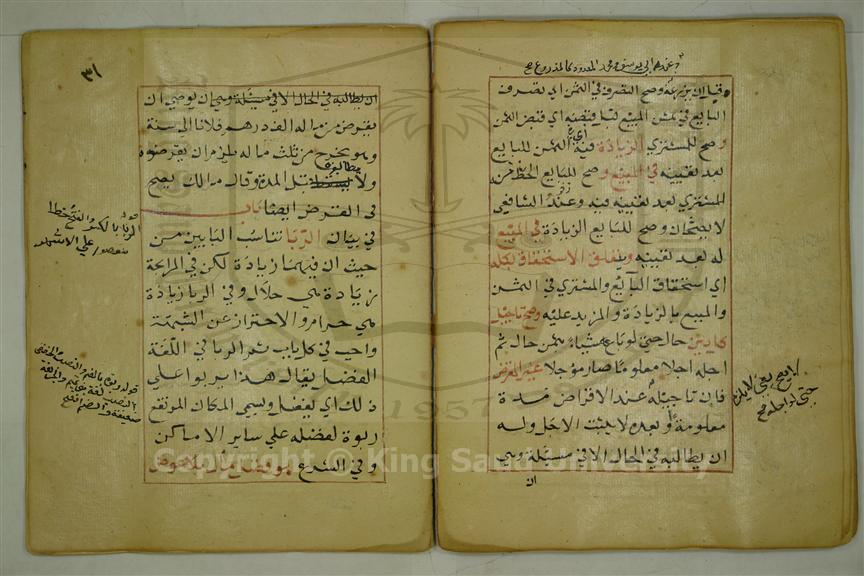 عند ابي يوسف ومحمد المعدود كالمذروع
وصح التصرف في الثمن اي تصرف
البايع في ثمن المبيع قبل قبضه اي قبض الثمن
وصح للمشتري الزيادة فيه اي في الثمن للبايع
بعد تعيينه في المبيع وصح للبايع الحط من
المشتري بعد تعيينه فيه وعند الشافعي
لا يصحان وصح للبايع الزيادة في المبيع
له بعد تعيينه ويتعلق الاستحقاق بكله
اي استحقاق البايع والمشتري في الثمن
والمبيع بالزيادة والمزيد عليه وصح تاجيل
كل دين حال حتى لو باع شيئا بثمن حال ثم
اجله اجلا معلوما صار مؤجلا غير القرض
فان تاجيله عند الاقراض مدة
معلومة او بعده لا يثبت الاجل وله
ان يطالبه في الحال الا في مسئلة وهي
ان
اي صح يعني لا يلزم
حتى لو اجله صح
٣١
ان يطالبه في الحال الا في مسئلة وهي ان يوصي ان
يقرض من ماله الف درهم فلانا الى سنة
وهو يخرج من ثلث ماله يلزم ان يقرضوه
ولا يطالبوه قبل المدة وقال مالك يصح
في القرض ايضا باب
في بيان الربا تناسب البابين من
حيث ان فيهما زيادة لكن في المرابحة
زيادة هي حلال وفي الربا زيادة
هي حرام والاحتراز عن الشبهة
واجب في كل باب ثم الربا في اللغة
الفضل يقال هذا يربو على
ذلك اي يفضل وسمي المكان المرتفع
ربوة لفضله على ساير الاماكن
وفي الشرع هو فضل مال بلا عوض
الربا بالكسر والفتح خطا
قوله ربوة بالضم
Copyright © King Saud University
1957